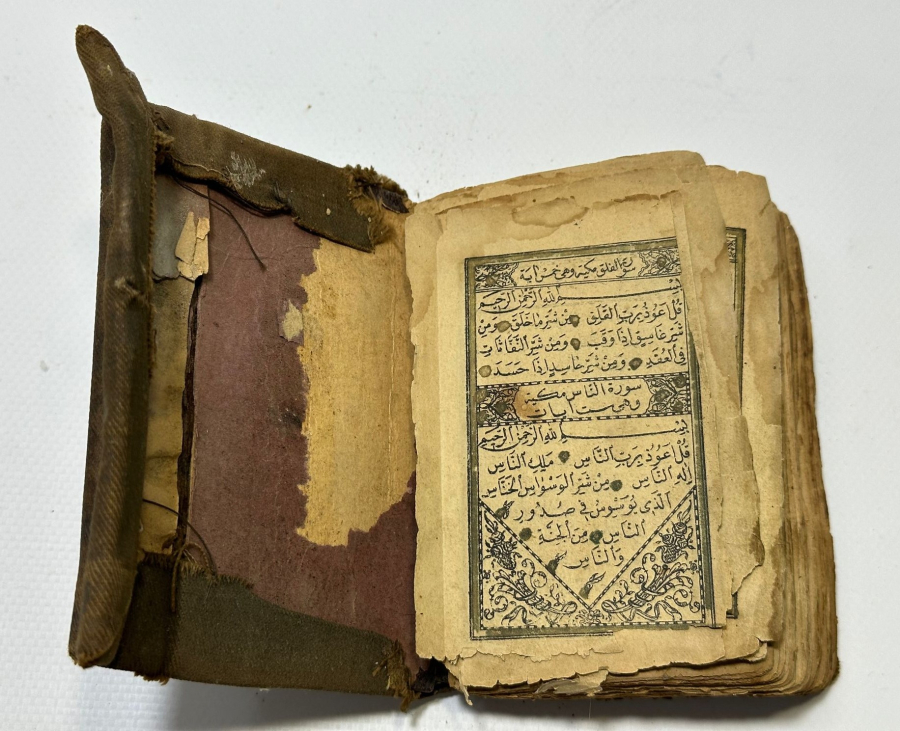 سورة الفلق مكية وهي خمس اية
بسم الله الرحمن الرحيم
قُلْ اَعُوذُ بِرَبِّ الْفَلَقِ مِنْ شَرِّ مَا خَلَقَ وَمِنْ
شَرِّ غَاسِقٍ اِذَا وَقَبَ وَمِنْ شَرِّ النَّفَّاثَاتِ
فِي الْعُقَدِ وَمِنْ شَرِّ حَاسِدٍ اِذَا حَسَدَ
سورة الناس مكية
وهي ست ايات
بسم الله الرحمن الرحيم
قُلْ اَعُوذُ بِرَبِّ النَّاسِ مَلِكِ النَّاسِ
اِلٰهِ النَّاسِ مِنْ شَرِّ الْوَسْوَاسِ الْخَنَّاسِ
الَّذِي يُوَسْوِسُ فِي صُدُورِ
النَّاسِ مِنَ الْجِنَّةِ
وَالنَّاسِ